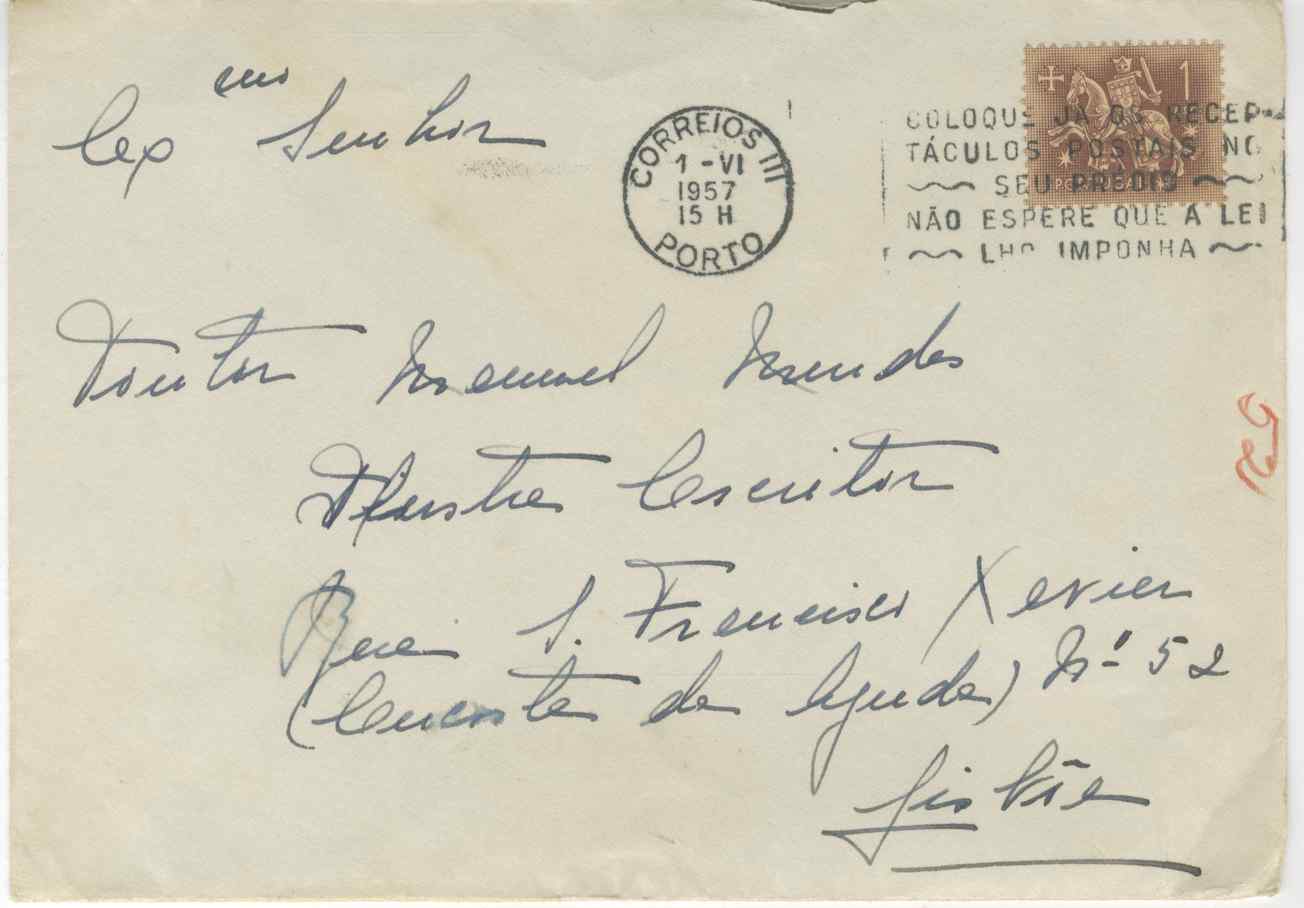 Exmo Senhor
CORREIOS III
1-VI
1957
15 H
PORTO
1
COLOQUE JÁ OS RECEP-
TÁCULOS POSTAIS NO
SEU PRÉDIO
NÃO ESPERE QUE A LEI
LHO IMPONHA
PORTUGAL
Doutor Manuel Mendes
Ilustre Escritor
Rua S. Francisco Xavier
(Encosta da Ajuda) Nº 52
Lisbôa
52